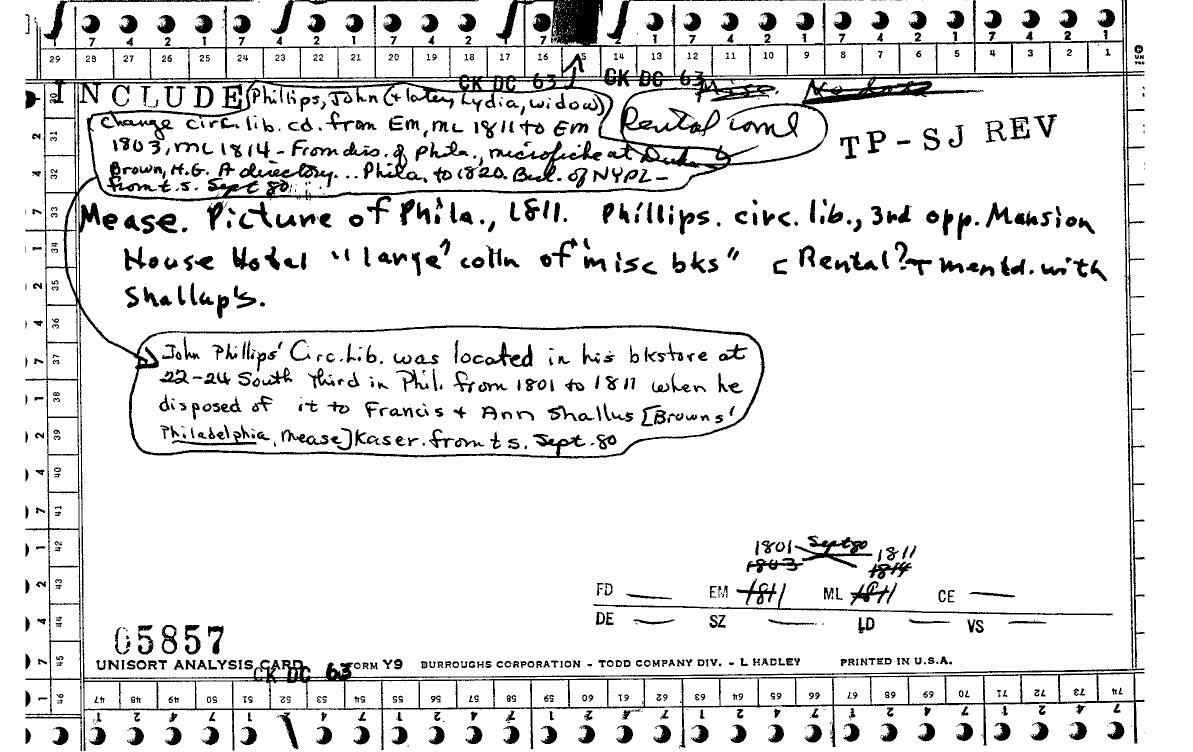 7 4 2 1 7 4 2 1 7 4 2 1 7 4 2 1 7 4 2 1 7 4 2 1
29 28 27 26 25 24 23 22 21 20 19 18 17 16 15 14 13 12 11 10 9 8 7 6 5 4 3 2 1
CK DC 63 CK DC 63
Misc. No date
INCLUDE Phillips, John (+ later Lydia, widow)
Change circ. lib. cd. from Em, ML 1811 to Em
1803, ML 1814 - From dirs. of Phila., microfiche at Duke
Brown, H.G. A directory... Phila. to 1820. Bul. of NYPL -
from t.s. Sept 80
Rental coml
TP-SJ REV
Mease. Picture of Phila., 1811. Phillips. circ. lib., 3rd opp. Mansion
House Hotel "large" colln of "misc bks" [Rental? + mentd. with
Shallup's.
John Phillips' Circ. Lib. was located in his bkstore at
22-24 South Third in Phil. from 1801 to 1811 when he
disposed of it to Francis + Ann Shallus [Browns'
Philadelphia, Mease] Kaser. from t.s. Sept. 80
1801 Sept 80 1811
1803 1814
FD — EM 1811 ML 1811 CE —
DE — SZ — LD — VS —
05857
UNISORT ANALYSIS CARD FORM Y9 BURROUGHS CORPORATION - TODD COMPANY DIV. - L HADLEY PRINTED IN U.S.A.
CK DC 63
47 48 49 50 51 52 53 54 55 56 57 58 59 60 61 62 63 64 65 66 67 68 69 70 71 72 73 74